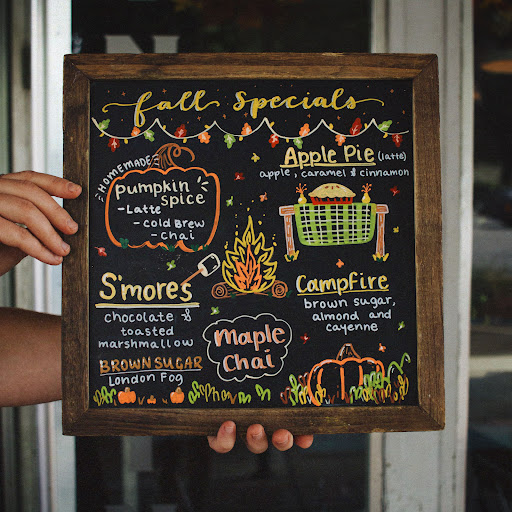 fall specials
HOMEMADE
pumpkin
spice
-Latte
-cold Brew
-chai
Apple Pie (latte)
apple, caramel & cinnamon
S'mores
chocolate &
toasted
marshmallow
Campfire
brown sugar,
almond and
cayenne
BROWN SUGAR
London Fog
Maple
Chai